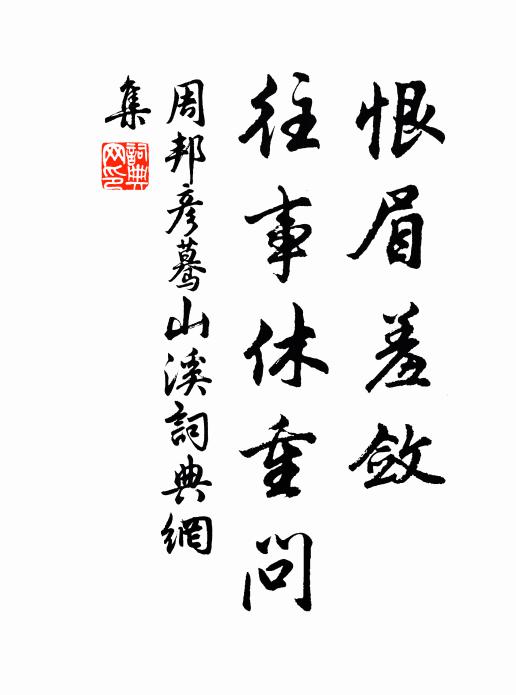 恨眉羞斂
往事休重問
周邦彥驀山溪詞典網
集
詞典
网印